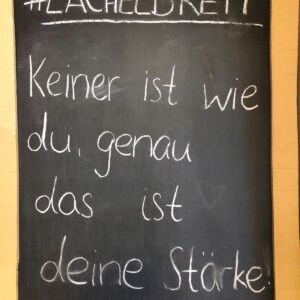 #LÄCHELBRETT
Keiner ist wie
du, genau
das ist ♡
deine Stärke!